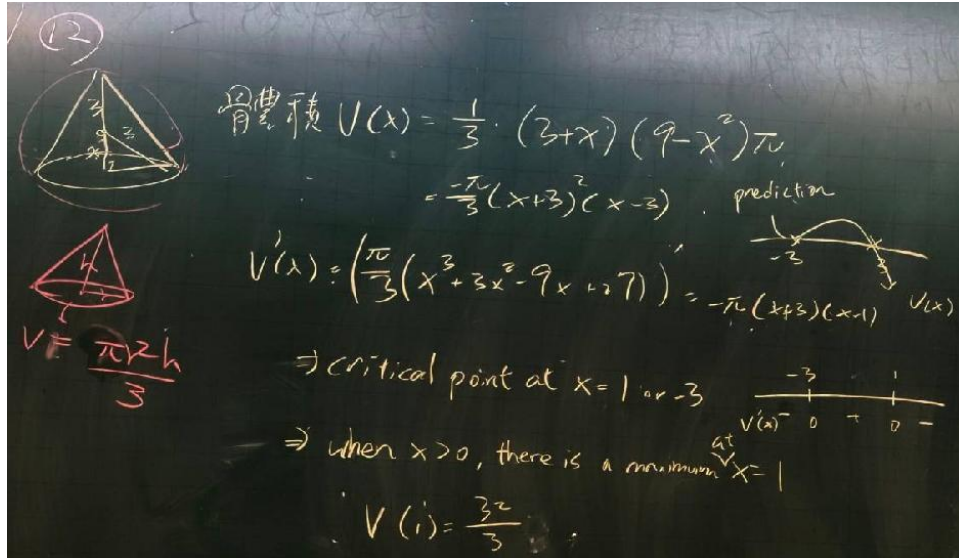 (12)
3
3
x
r
體積 V(x) = 1/3 · (3+x)(9-x²)π
= -π/3 (x+3)²(x-3)
prediction
-3
3
V(x)
h
r
V'(x) = (π/3 (x³+3x²-9x+27))' = -π(x+3)(x-1)
V = πr²h/3
⇒ critical point at x=1 or -3
-3 1
V'(x) - 0 + 0 -
⇒ when x>0, there is a maximum at x=1
V(1) = 32/3